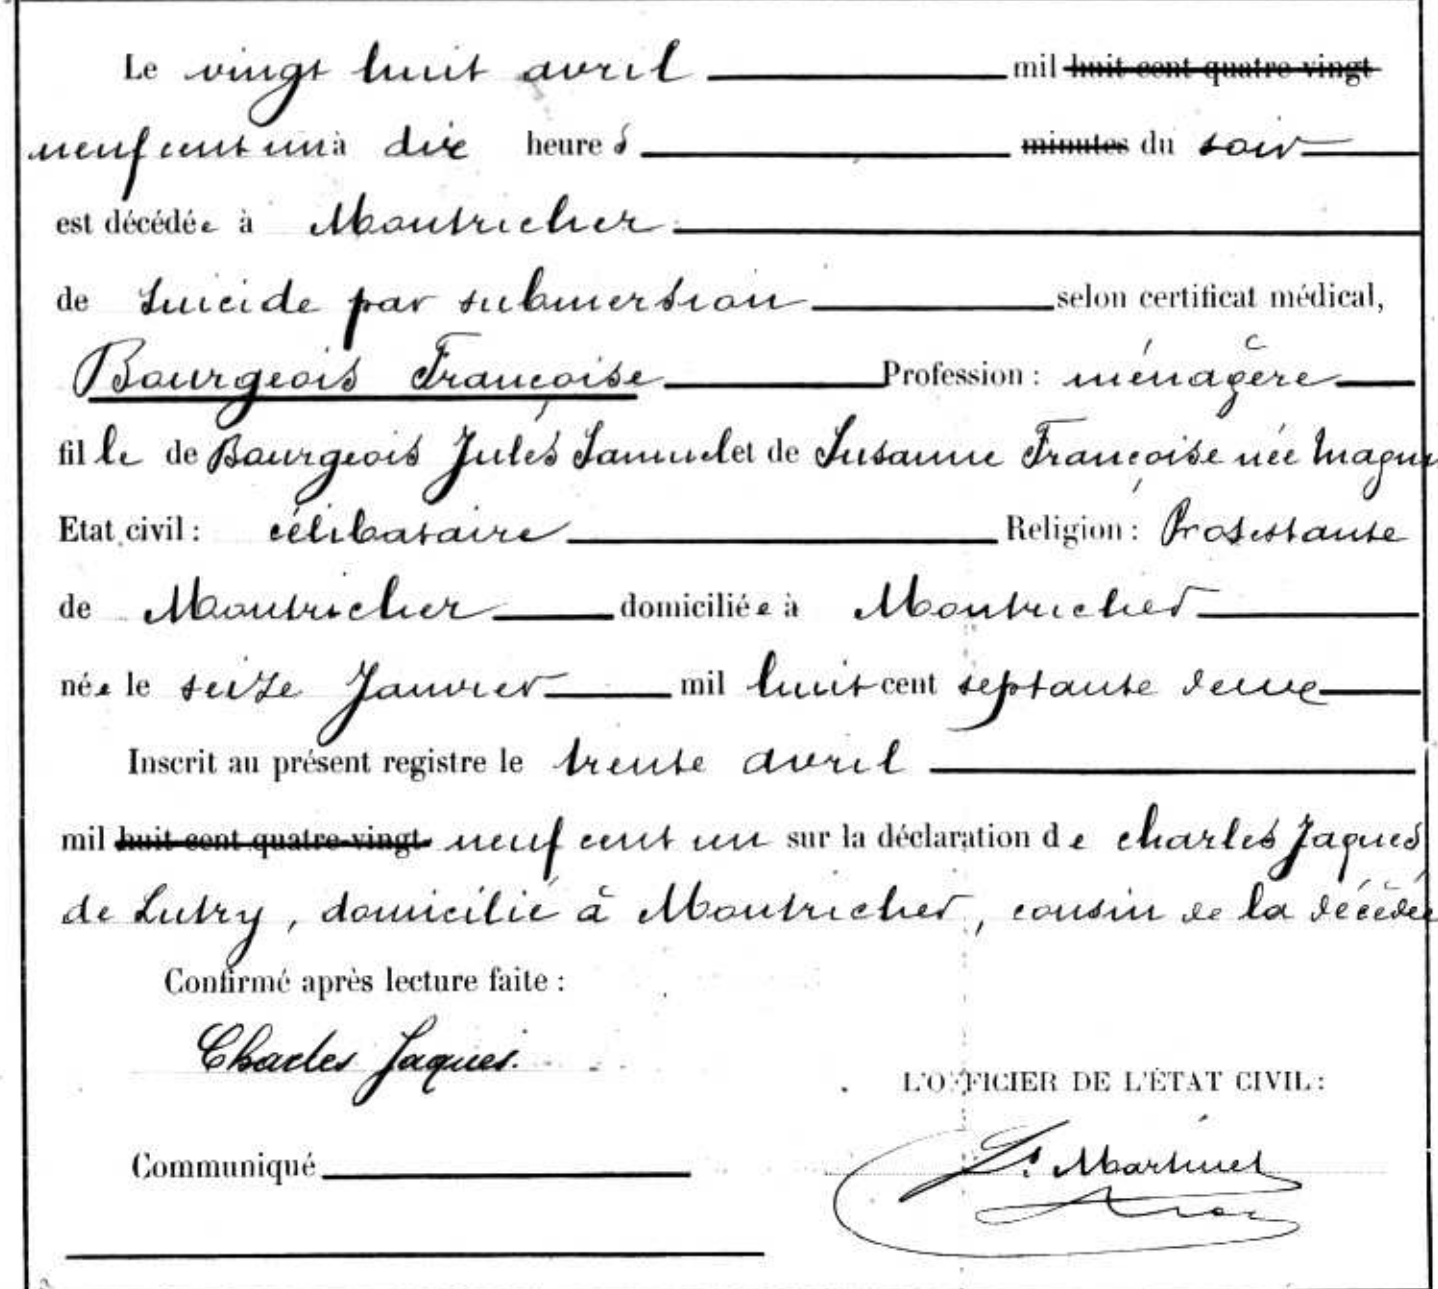 Le vingt huit avril mil huit cent quatre-vingt
neuf cent un à dix heures minutes du soir
est décédée à Montricher
de suicide par submersion selon certificat médical,
Bourgeois Françoise Profession : ménagère
fille de Bourgeois Jules Samuel et de Susanne Françoise née Magnin
Etat civil : célibataire Religion : Protestante
de Montricher domiciliée à Montricher
née le seize Janvier mil huit cent septante deux
Inscrit au présent registre le trente avril
mil huit cent quatre-vingt neuf cent un sur la déclaration de Charles Jaques
de Lutry, domicilié à Montricher, cousin de la décédée
Confirmé après lecture faite :
Charles Jaques.
L'OFFICIER DE L'ÉTAT CIVIL :
Communiqué
Ls Martinet